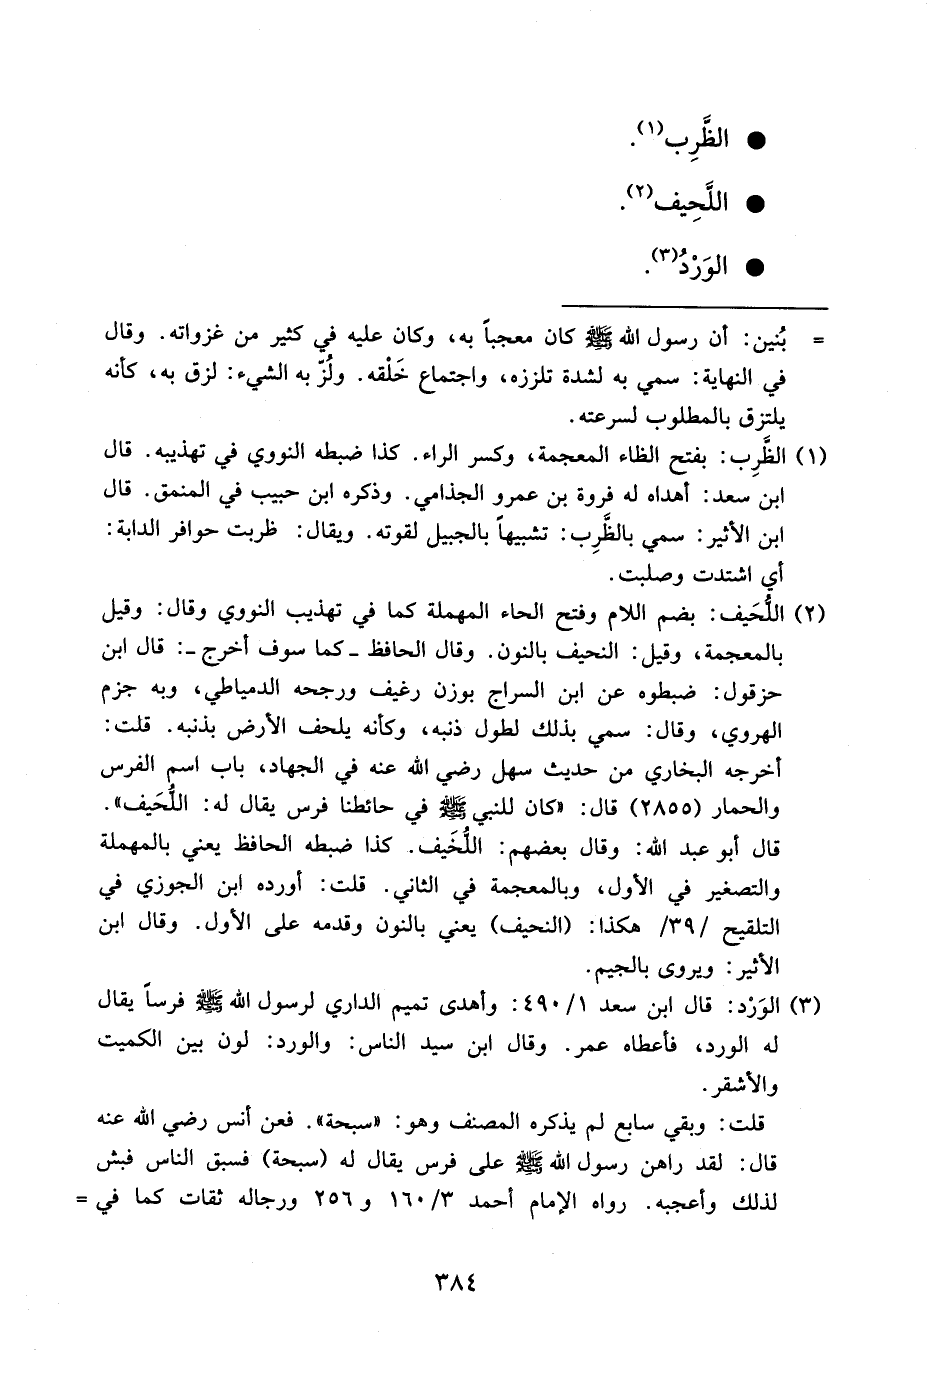 ● الظَّرِب(١).
● اللَّحِيف(٢).
● الوَرْدُ(٣).
= بُنين: أن رسول الله ﷺ كان معجباً به، وكان عليه في كثير من غزواته. وقال
في النهاية: سمي به لشدة تلززه، واجتماع خَلْقه. ولُزّ به الشيء: لزق به، كأنه
يلتزق بالمطلوب لسرعته.
(١) الظَّرِب: بفتح الظاء المعجمة، وكسر الراء. كذا ضبطه النووي في تهذيبه. قال
ابن سعد: أهداه له فروة بن عمرو الجذامي. وذكره ابن حبيب في المنمق. قال
ابن الأثير: سمي بالظَّرِب: تشبيهاً بالجبيل لقوته. ويقال: ظربت حوافر الدابة:
أي اشتدت وصلبت.
(٢) اللُّحَيف: بضم اللام وفتح الحاء المهملة كما في تهذيب النووي وقال: وقيل
بالمعجمة، وقيل: النحيف بالنون. وقال الحافظ ـ كما سوف أخرج ـ: قال ابن
حزقول: ضبطوه عن ابن السراج بوزن رغيف ورجحه الدمياطي، وبه جزم
الهروي، وقال: سمي بذلك لطول ذنبه، وكأنه يلحف الأرض بذنبه. قلت:
أخرجه البخاري من حديث سهل رضي الله عنه في الجهاد، باب اسم الفرس
والحمار (٢٨٥٥) قال: «كان للنبي ﷺ في حائطنا فرس يقال له: اللُّحَيف».
قال أبو عبد الله: وقال بعضهم: اللُّخَيف. كذا ضبطه الحافظ يعني بالمهملة
والتصغير في الأول، وبالمعجمة في الثاني. قلت: أورده ابن الجوزي في
التلقيح /٣٩/ هكذا: (النحيف) يعني بالنون وقدمه على الأول. وقال ابن
الأثير: ويروى بالجيم.
(٣) الوَرْد: قال ابن سعد ١/ ٤٩٠: وأهدى تميم الداري لرسول الله ﷺ فرساً يقال
له الورد، فأعطاه عمر. وقال ابن سيد الناس: والورد: لون بين الكميت
والأشقر.
قلت: وبقي سابع لم يذكره المصنف وهو: «سبحة». فعن أنس رضي الله عنه
قال: لقد راهن رسول الله ﷺ على فرس يقال له (سبحة) فسبق الناس فبش
لذلك وأعجبه. رواه الإمام أحمد ٣/ ١٦٠ و ٢٥٦ ورجاله ثقات كما في =
٣٨٤